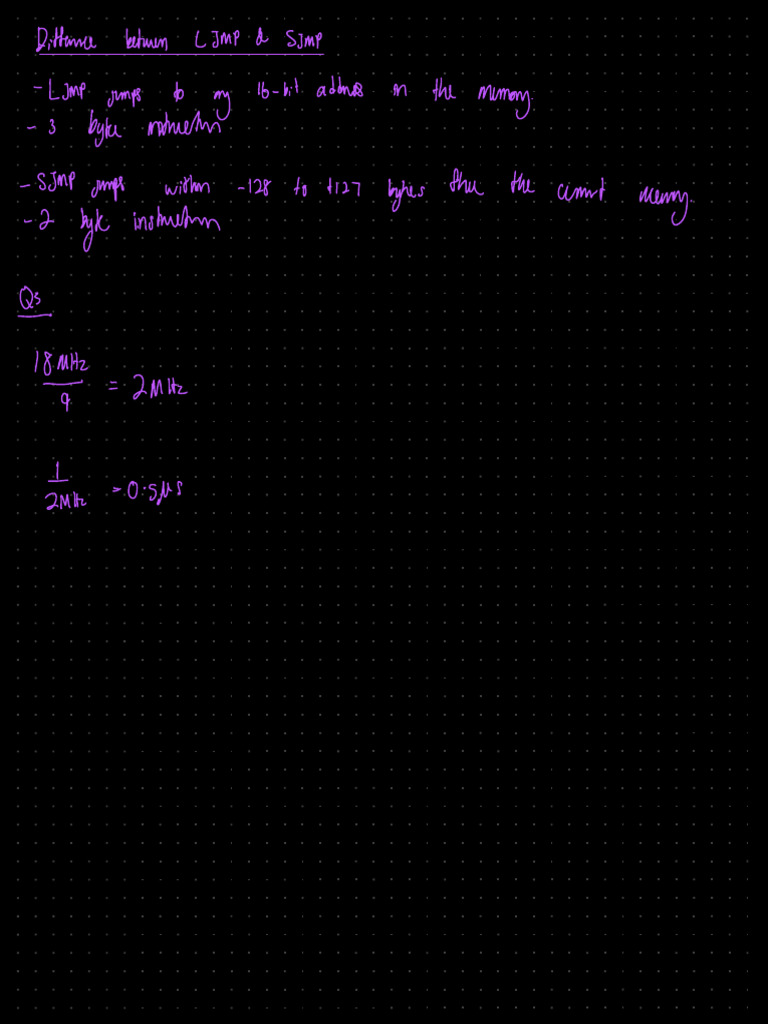 Difference between LJMP & SJMP
- LJMP jumps to any 16-bit address in the memory.
- 3 byte instruction
- SJMP jumps within -128 to +127 bytes the the current memory.
- 2 byte instruction
Qs
18 MHz
/ 9 = 2MHz
1
/ 2MHz = 0.5μs